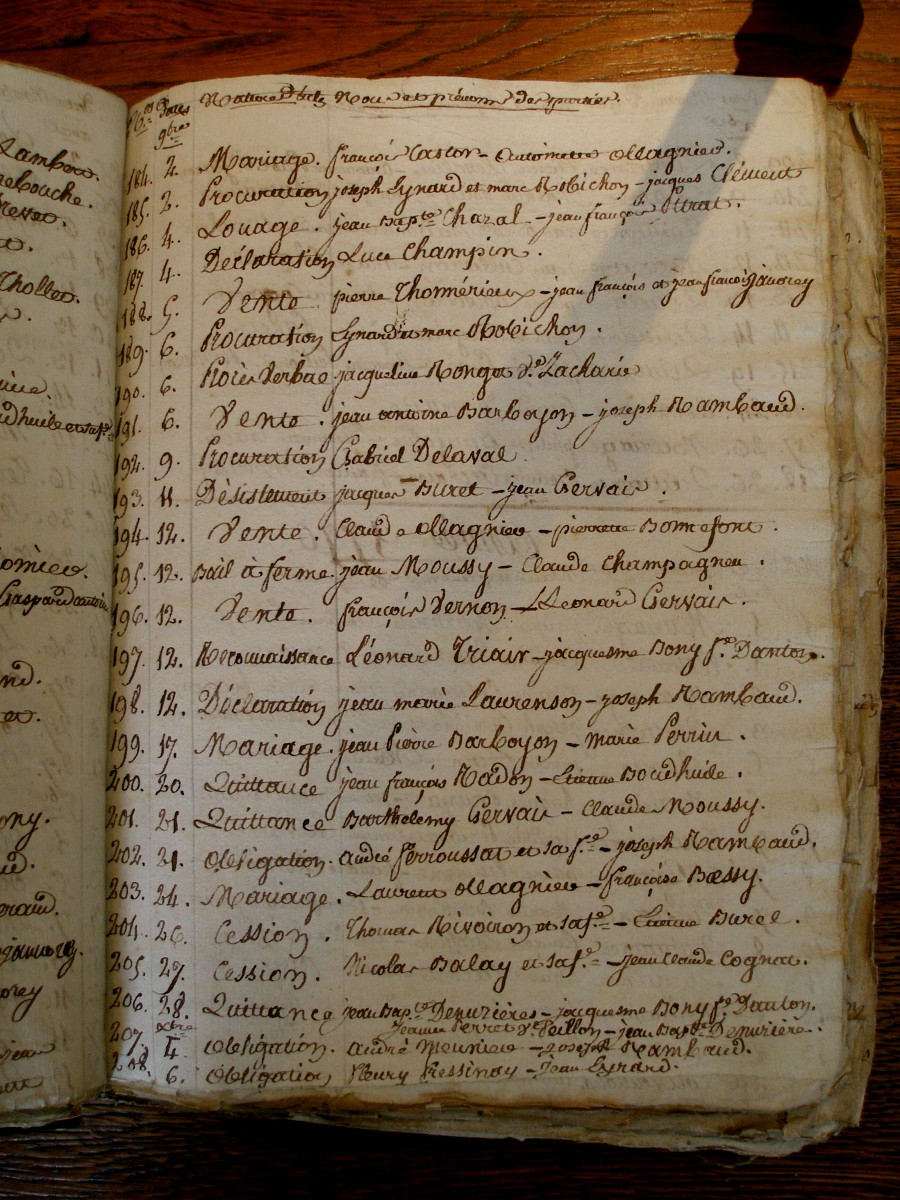 Lambert.
rebouche.
Thollet.
dhuile et sa f.e
Gaspard antoine
N.os Jours Nature d'actes Noms et prénoms des parties.
9bre
184. 2. Mariage. françois Caston - Ollagnier.
185. 2. Procuration joseph Lynard et marc Robichon - jacques Clément
186. 4. Louage. jean Bap.te Chazal - jean françois Ottrat.
187. 4. Déclaration Luce Champin.
188. 5. Vente pierre Thomérieux - jean françois et jean francois janorey
189. 6. Procuration Lynard et marc Robichon.
190. 6. Procès Verbae jacqueline Rongat V.e Zacharie
191. 6. Vente. jean antoine Barboyon - joseph Rambaud.
192. 9. Procuration Gabriel Delaval
193. 11. Désistement jacques Buret - jean Gervais.
194. 12. Vente. Claude Ollagnier - pierrette Bonnefont.
195. 12. Bail à ferme jean Moussy - Claude Champagneu.
196. 12. Vente. françois Vernon - Leonard Gervais.
197. 12. Reconnaissance Léonard Triair - jacquesme Bony f.e Danton.
198. 12. Déclaration jean marie Laurenson - joseph Rambaud.
199. 17. Mariage. jean Pierre Barboyon - Marie Perrin.
200. 20. Quittance jean françois Radon - Etienne Boudhuile.
201. 21. Quittance Barthelemy Gervais - Claude Moussy.
202. 21. Obligation. andré ferroussat et sa f.e - joseph Rambaud.
203. 24. Mariage. Laurent Ollagnier - françoise Bœssy.
204. 26. Cession. Thomas Rivoiron et sa f.e - Etienne Burel.
205. 27. Cession. Nicolas Balay et sa f.e - jean Claude Cognat.
206. 28. Quittance jean Bap.te Denuzières - jacquesme Bony f.e Danton.
Jeanne Perret V.e Peillon - jean Bap.te Denuzière.
207. xbre 4. Obligation. andré Meunier - Joseph Rambaud.
208. 6. Obligation fleury Fressinay - Jean Lynard.